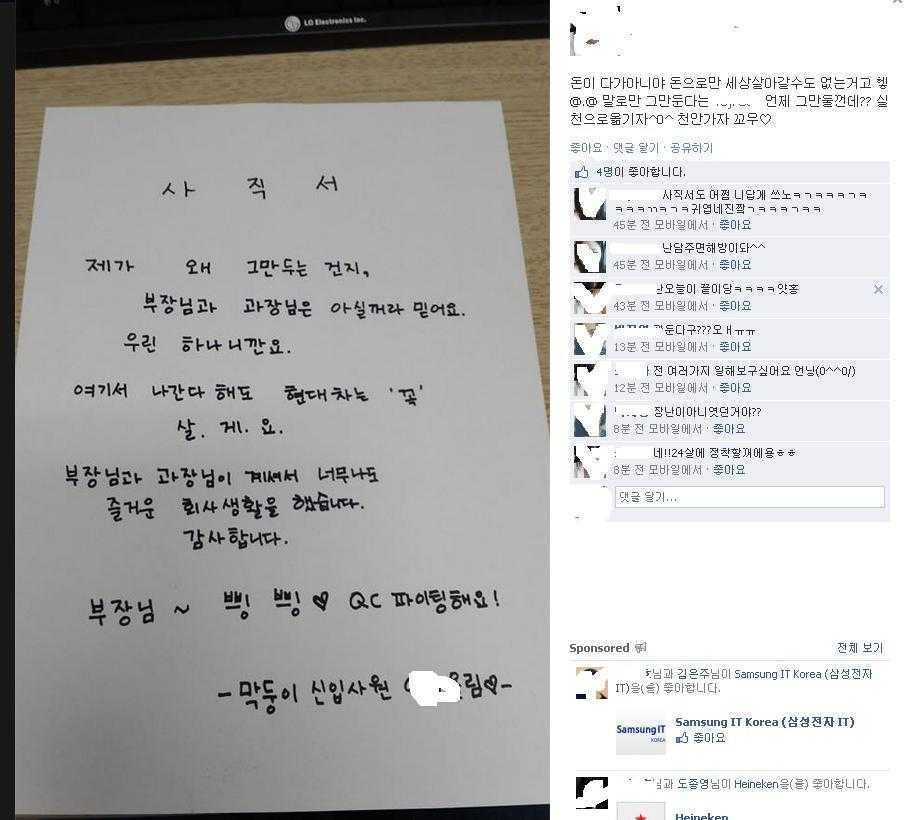 LG Electronics Inc.
사 직 서
제가 왜 그만두는 건지,
부장님과 과장님은 아실꺼라 믿어요.
우린 하나니깐요.
여기서 나간다 해도 현대차는 '꽃'
살. 게. 요.
부장님과 과장님이 계셔서 너무나도
즐거운 회사생활을 했습니다.
감사합니다.
부장님 ~ 쁘잉 쁘잉 ♡ QC 파이팅해요!
-막둥이 신입사원 림♡-
돈이 다가아니야 돈으로만 세상살아갈수도 없는거고 헿
@.@ 말로만 그만둔다는 언제 그만둘껀데?? 실
천으로옮기자^0^ 천안가자 꼬우♡
좋아요 · 댓글 달기 · 공유하기
4명이 좋아합니다.
사직서도 어쩜 니답게 쓰노ㅋㄱㅋㅋㅋㅋㄱ
ㅋㅋㅋㄲㅋㄱㅋ귀엽네진짴ㄱㅋㅋㅋㄱㅋㅋ
45분 전 모바일에서 · 좋아요
난담주면해방이돠^^
45분 전 모바일에서 · 좋아요
난오늘이 끝이당ㅋㅋㅋㅋ얏홍
43분 전 모바일에서 · 좋아요
둔다구???오ㅐㅠㅠ
13분 전 모바일에서 · 좋아요
전 여러가지 일해보구싶어요 언닝(0^^0/)
12분 전 모바일에서 · 좋아요
장난이아니엿던거야??
8분 전 모바일에서 · 좋아요
네!!24살에 정착할꺼에용ㅎㅎ
8분 전 모바일에서 · 좋아요
댓글 달기...
Sponsored 전체 보기
님과 김은주님이 Samsung IT Korea (삼성전자
IT)을(를) 좋아합니다.
Samsung IT Korea (삼성전자 IT)
SamsungIT
KOREA
좋아요
님과 도종영님이 Heineken을(를) 좋아합니다.
Heineken